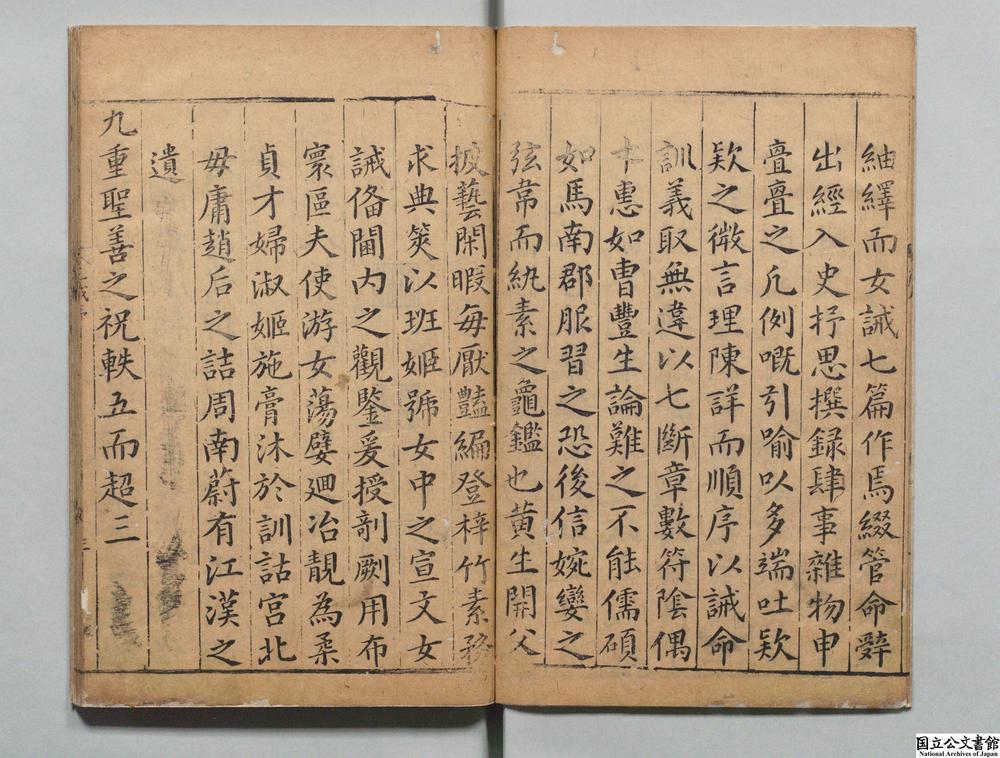 紬繹而女誡七篇作焉綴管命辭
出經入史抒思撰録肆事雜物申
亹亹之凡例嘅引喻以多端吐欵
欵之微言理陳詳而順序以誡命
訓義取無違以七斷章數符陰偶
十恚如曹豐生論難之不能儒碩
如馬南郡服習之恐後信婉孌之
弦韋而紈素之龜鑑也黄生開父
披藝閑暇每厭豔編登梓竹素務
求典筴以班姬號女中之宣文女
誡俻閫内之觀鑒爰授剞劂用布
寰區夫使游女蕩嬖迴冶靚為柔
貞才婦淑姬施膏沐於訓詁宮北
毋庸趙后之詰周南蔚有江漢之
遺
九重聖善之祝軼五而超三
国立公文書館
National Archives of Japan